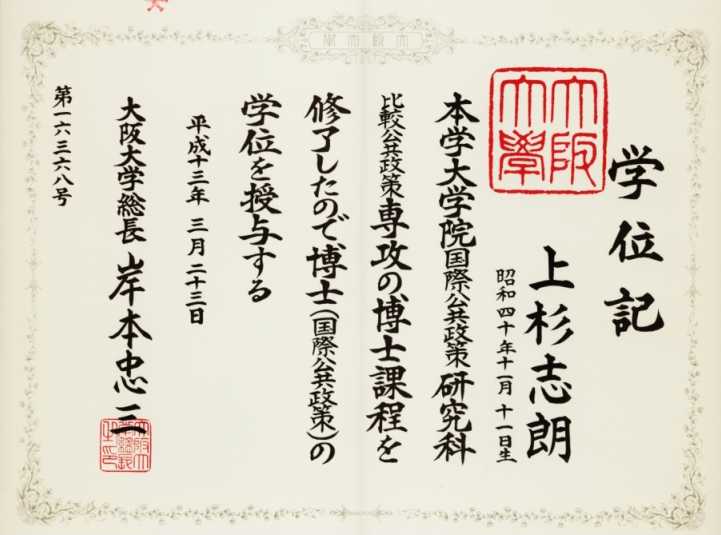 学位記
大阪
大學
上杉志朗
昭和四十年十一月十一日生
本学大学院国際公共政策研究科
比較公共政策専攻の博士課程を
修了したので、博士(国際公共政策)の
学位を授与する
平成十三年三月二十三日
大阪大学総長 岸本忠三
第一六三六八号